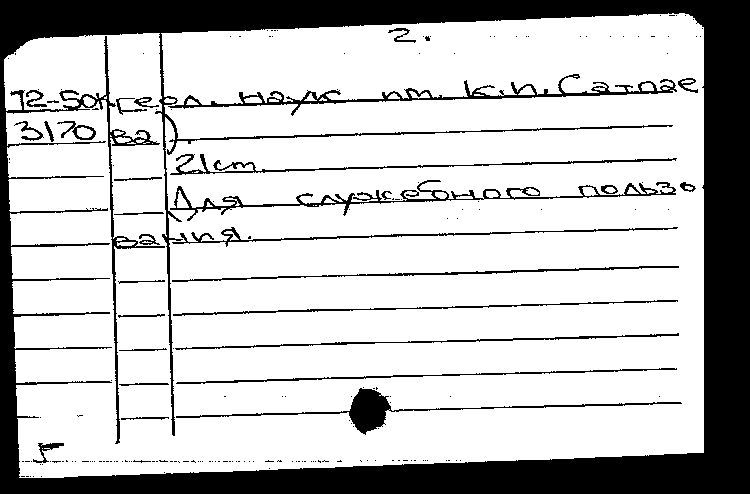 2.
72-50к геол. наук им. К.И. Сатпае
3170 ва).
21cm.
Для служебного пользо
вания.